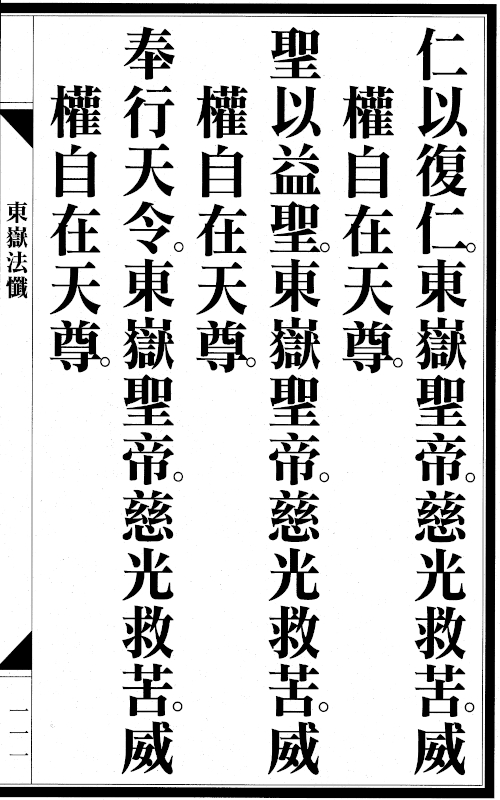 仁以復仁。東嶽聖帝。慈光救苦。威
權自在天尊。
聖以益聖。東嶽聖帝。慈光救苦。威
權自在天尊。
奉行天令。東嶽聖帝。慈光救苦。威
權自在天尊。
東嶽法懺
一一一